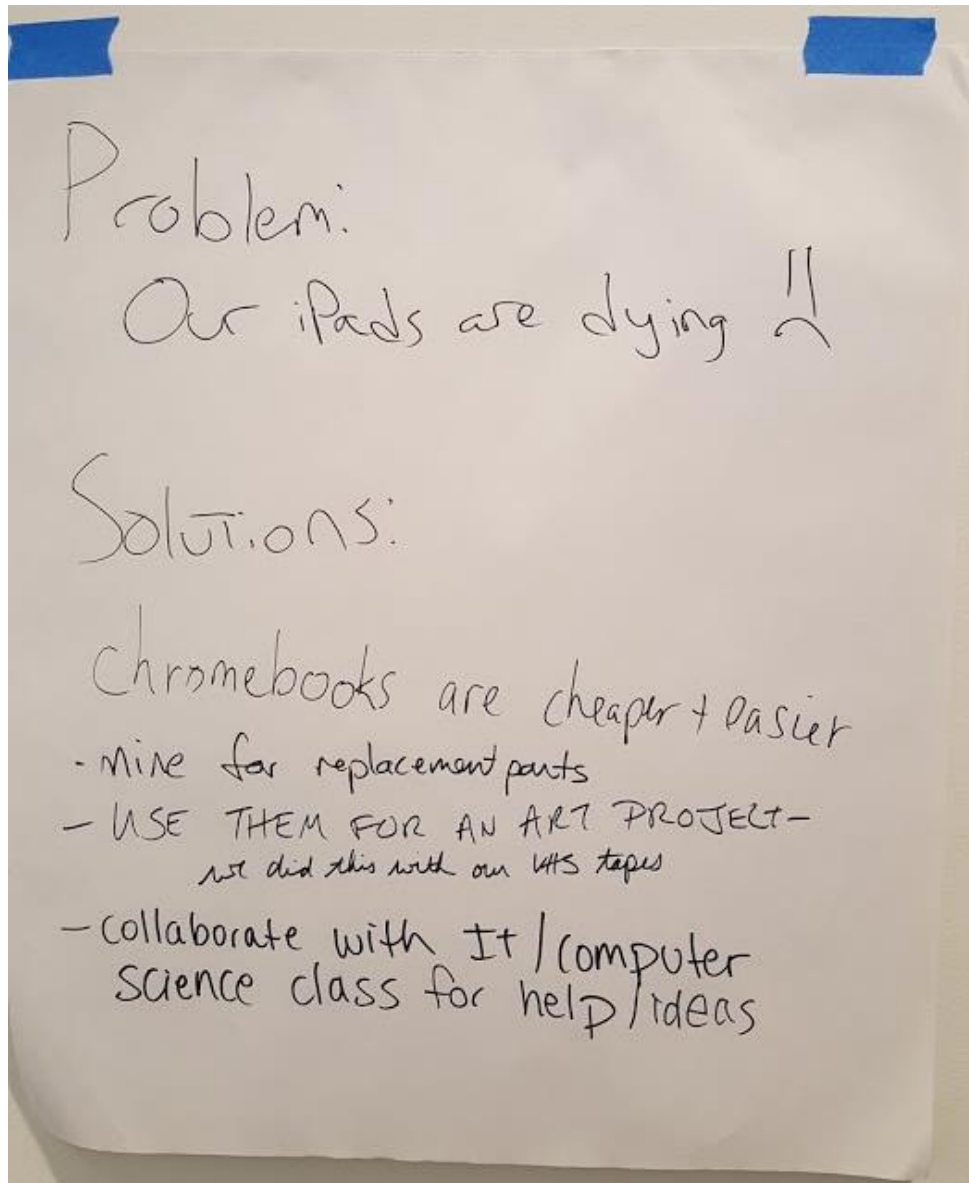 Problem:
Our iPads are dying
Solutions:
Chromebooks are cheaper + easier
- mine for replacement parts
- USE THEM FOR AN ART PROJECT -
we did this with our VHS tapes
- collaborate with It/computer
science class for help/ideas